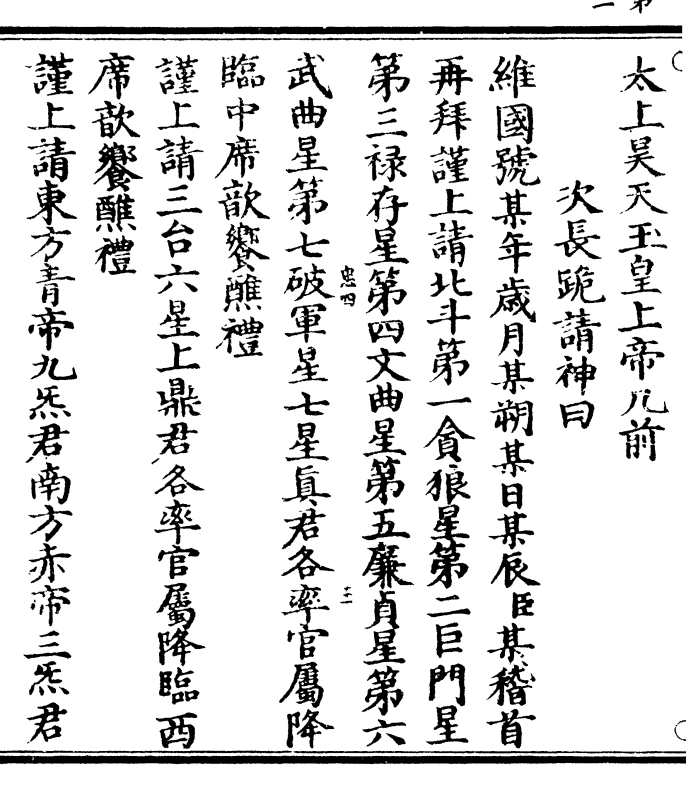 太上昊天玉皇上帝几前
次長跪請神曰
維國號某年歲月某朔某日某辰臣某稽首
再拜謹上請北斗第一貪狼星第二巨門星
第三禄存星第四文曲星第五廉貞星第六
忠四
武曲星第七破軍星七星眞君各率官屬降
臨中席歆饗醮禮
謹上請三台六星上鼎君各率官屬降臨西
席歆饗醮禮
謹上請東方青帝九炁君南方赤帝三炁君